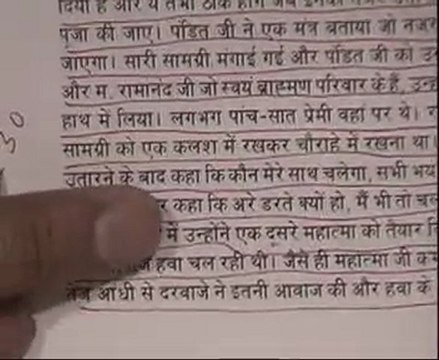 दिया है और ये तभी ठीक होंगे जब इनकी
पूजा की जाए। पंडित जी ने एक मंत्र बताया जो
जाएगा। सारी सामग्री मंगाई गई और पंडित जी को
और म. रामानंद जी जो स्वयं ब्राह्मण परिवार के हैं,
हाथ में लिया। लगभग पांच-सात प्रेमी वहां पर थे।
सामग्री को एक कलश में रखकर चौराहे में रखना था
उतारने के बाद कहा कि कौन मेरे साथ चलेगा, सभी
कहा कि अरे डरते क्यों हो, मैं भी तो
में उन्होंने एक दूसरे महात्मा को तैयार
हवा चल रही थी। जैसे ही महात्मा जी
तेज आंधी से दरवाजे ने इतनी आवाज की और हवा के